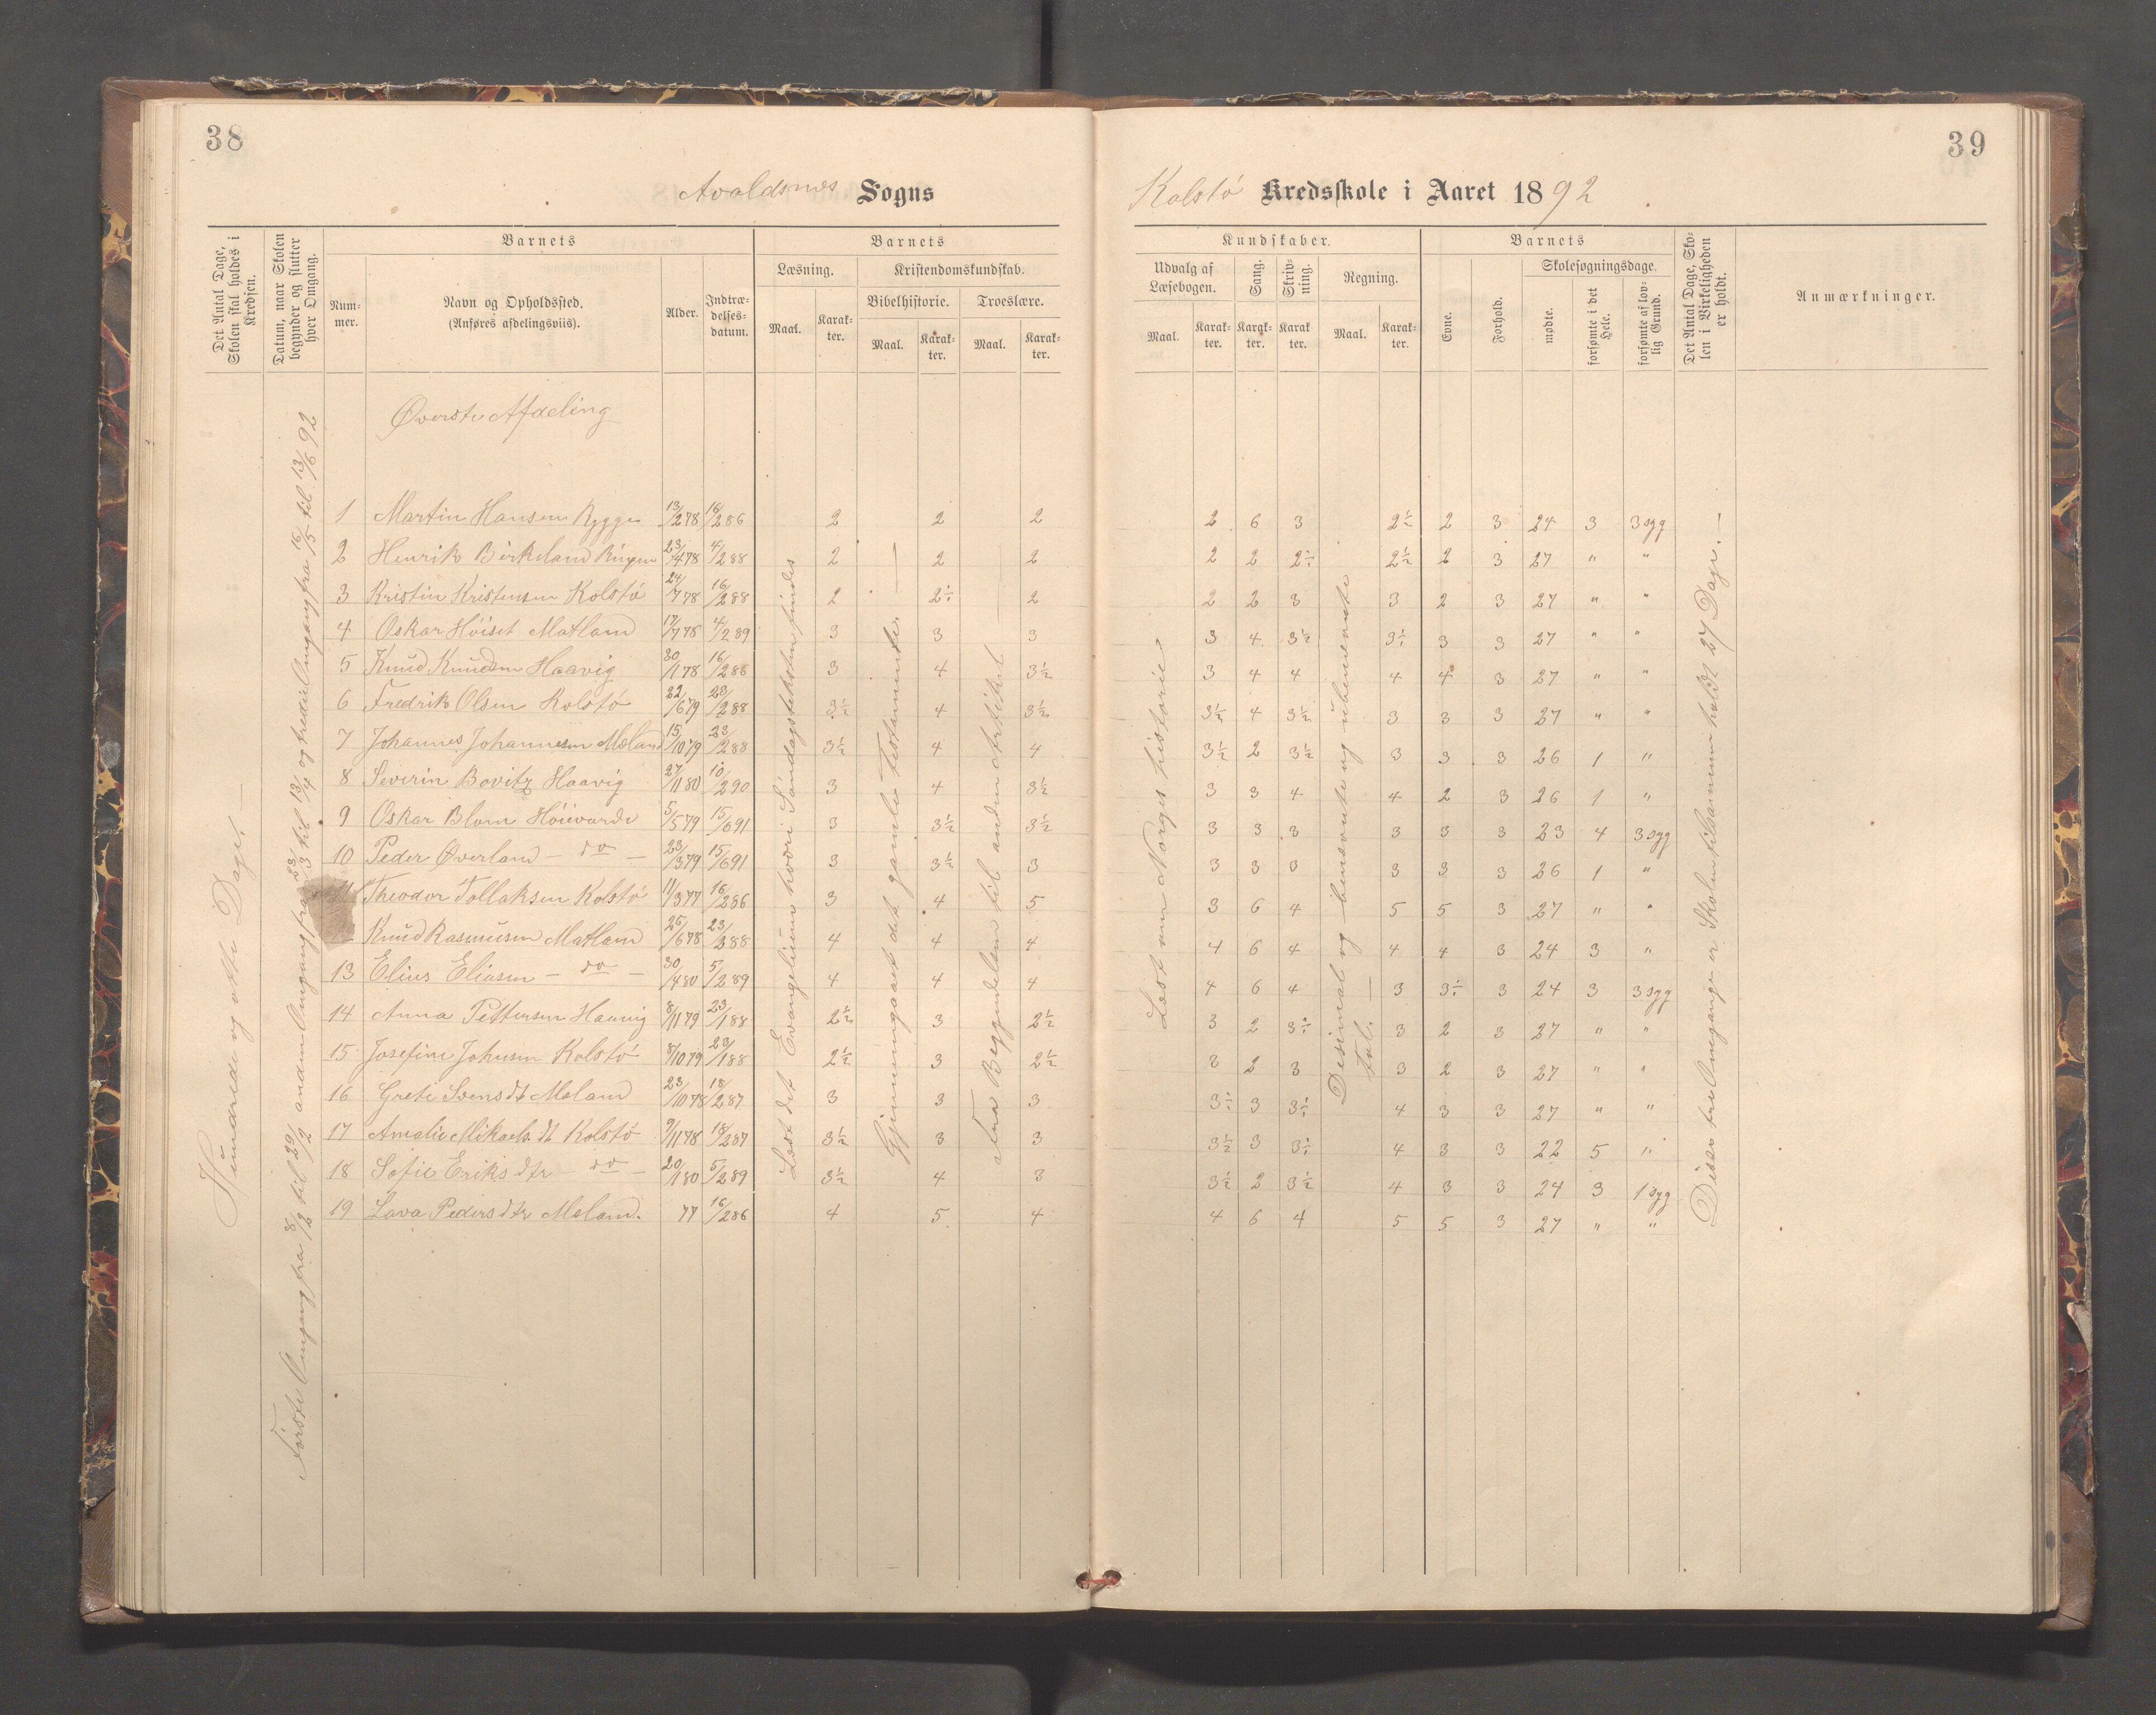 38
Avaldsnes Sogns
Det Antal Dage, Skolen skal holdes i Kredsen.
Datum, naar Skolen begynder og slutter hver Omgang.
Barnets
Nummer.
Navn og Opholdssted.
(Anføres afdelingsviis).
Alder.
Indtrædelses-datum.
Barnets
Læsning.
Maal.
Karakter.
Kristendomskundskab.
Bibelhistorie.
Maal.
Karakter.
Troeslære.
Maal.
Karakter.
Hundrede og otte Dage. —
Første Omgang fra 8/2 til 29/2 anden Omgang fra 23/3 til 13/4 og tredie Omgang fra 16/5 til 13/6 92
Øverste Afdeling
1 Martin Hansen Rygge 13/2 78 16/2 86 2 2 2
2 Henrik Birkeland 23/4 78 4/2 88 2 2 2
3 Kristin Kristensen Kolstø 24/7 78 16/2 88 2 2½ 2
4 Oskar Høiset Matland 17/7 78 4/2 89 3 3 3
5 Knud Knudsen Haavig 30/1 78 16/2 86 3 4 3½
6 Fredrik Olsen Kolstø 22/6 79 23/2 88 3½ 4 3½
7 Johannes Johannesen Mæland 15/10 79 23/2 88 3½ 4 4
8 Severin Bovitz Haavig 27/11 80 10/2 90 3 4 3½
9 Oskar Blom Høievarde 5/5 79 15/6 91 3 3½ 3½
10 Peder Øverland — do — 23/3 79 15/6 91 3 3½ 3
11 Theodor Tollaksen Kolstø 11/3 77 16/2 86 3 4 5
Knud Rasmusen Matland 25/6 78 23/3 88 4 4 4
13 Elius Eliasen — do — 30/4 80 5/2 89 4 4 4
14 Anna Pettersen Haavig 8/11 79 23/1 88 2½ 3 2½
15 Josefine Johnsen Kolstø 8/10 79 23/1 88 2½ 3 2½
16 Grete Svensdt Mæland 23/10 78 18/2 87 3 3 3
17 Amalie Mikaelsdt Kolstø 9/11 78 18/2 87 3½ 3 3
18 Sofie Eriksdtr — do — 20/1 80 5/2 89 3½ 4 3
19 Lava Pedersdtr Mæland. 77 16/2 86 4 5 4
Læst det Evangelium hvori Søndagsteksten findes
Gjennemgaaet det gamle Testamente. —
Fra Begyndelsen til anden Artikel
39
Kolstø Kredsskole i Aaret 1892
Kundskaber.
Udvalg af Læsebogen.
Maal.
Karakter.
Sang.
Karakter.
Skrivning.
Karakter.
Regning.
Maal.
Karakter.
Barnets
Evne.
Forhold.
Skolesøgningsdage.
mødte.
forsømte i det Hele.
forsømte af lovlig Grund.
Det Antal Dage, Skolen i Virkeligheden er holdt.
Anmærkninger.
2 6 3 2½ 2 3 24 3 3 syg
2 2 2½ 2½ 2 3 27 " "
2 2 3 3 2 3 27 " "
3 4 3½ 3½ 3 3 27 " "
3 4 4 4 4 3 27 " "
3½ 4 3½ 3 3 3 27 " "
3½ 2 3½ 3 3 3 26 1 "
3 3 4 4 2 3 26 1 "
3 3 3 3 3 3 23 4 3 syg
3 3 3 3 3 3 26 1 "
3 6 4 5 5 3 27 " "
4 6 4 4 4 3 24 3 "
4 6 4 3 3½ 3 24 3 3 syg
3 2 3½ 3 2 3 27 " "
3 2 3 3 2 3 27 " "
3½ 3 3½ 4 3 3 27 " "
3½ 3 3½ 4 3 3 22 5 "
3½ 2 3½ 4 3 3 24 3 1 syg
4 6 4 5 5 3 27 " "
Læst om Norges historie
Desimal og benævnte og ubenævnte Tal. —
Disse tre Omgange er Skolen tilsammen holdt 27 Dage. —